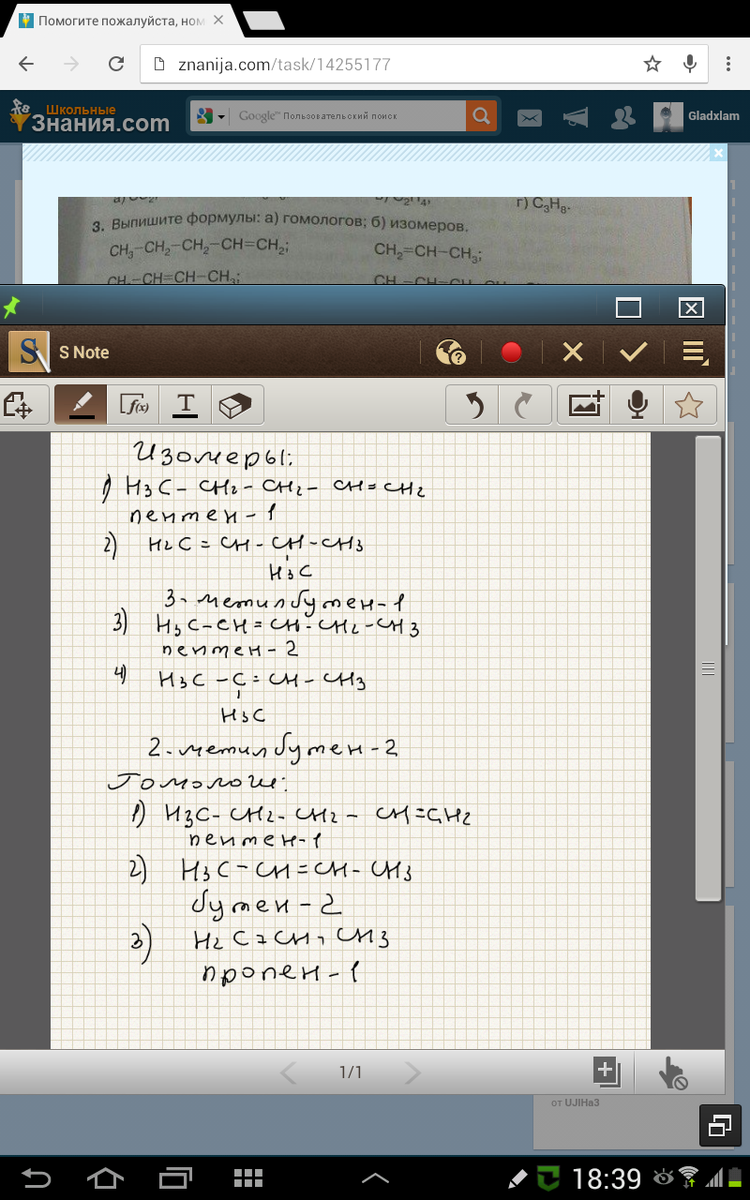 Помогите пожалуйста, ном
znanija.com/task/14255177
Школьные
Знания.com
Google™ Пользовательский поиск
Gladxlam
г) C₃H₈.
3. Выпишите формулы: а) гомологов; б) изомеров.
CH₃–CH₂–CH₂–CH=CH₂; CH₂=CH–CH₃;
CH₃–CH=CH–CH₃;
S Note
f(x) T
Изомеры:
1) H3C - CH2 - CH2 - CH = CH2
пентен - 1
2) H2C = CH - CH - CH3
H3C
3-метилбутен-1
3) H3C-CH=CH-CH2-CH3
пентен-2
4) H3C - C = CH - CH3
H3C
2-метилбутен-2
Гомологи:
1) H3C- CH2- CH2 - CH=CH2
пентен-1
2) H3C-CH=CH-CH3
бутен-2
3) H2C=CH-CH3
пропен-1
1/1
от UJIHa3
18:39